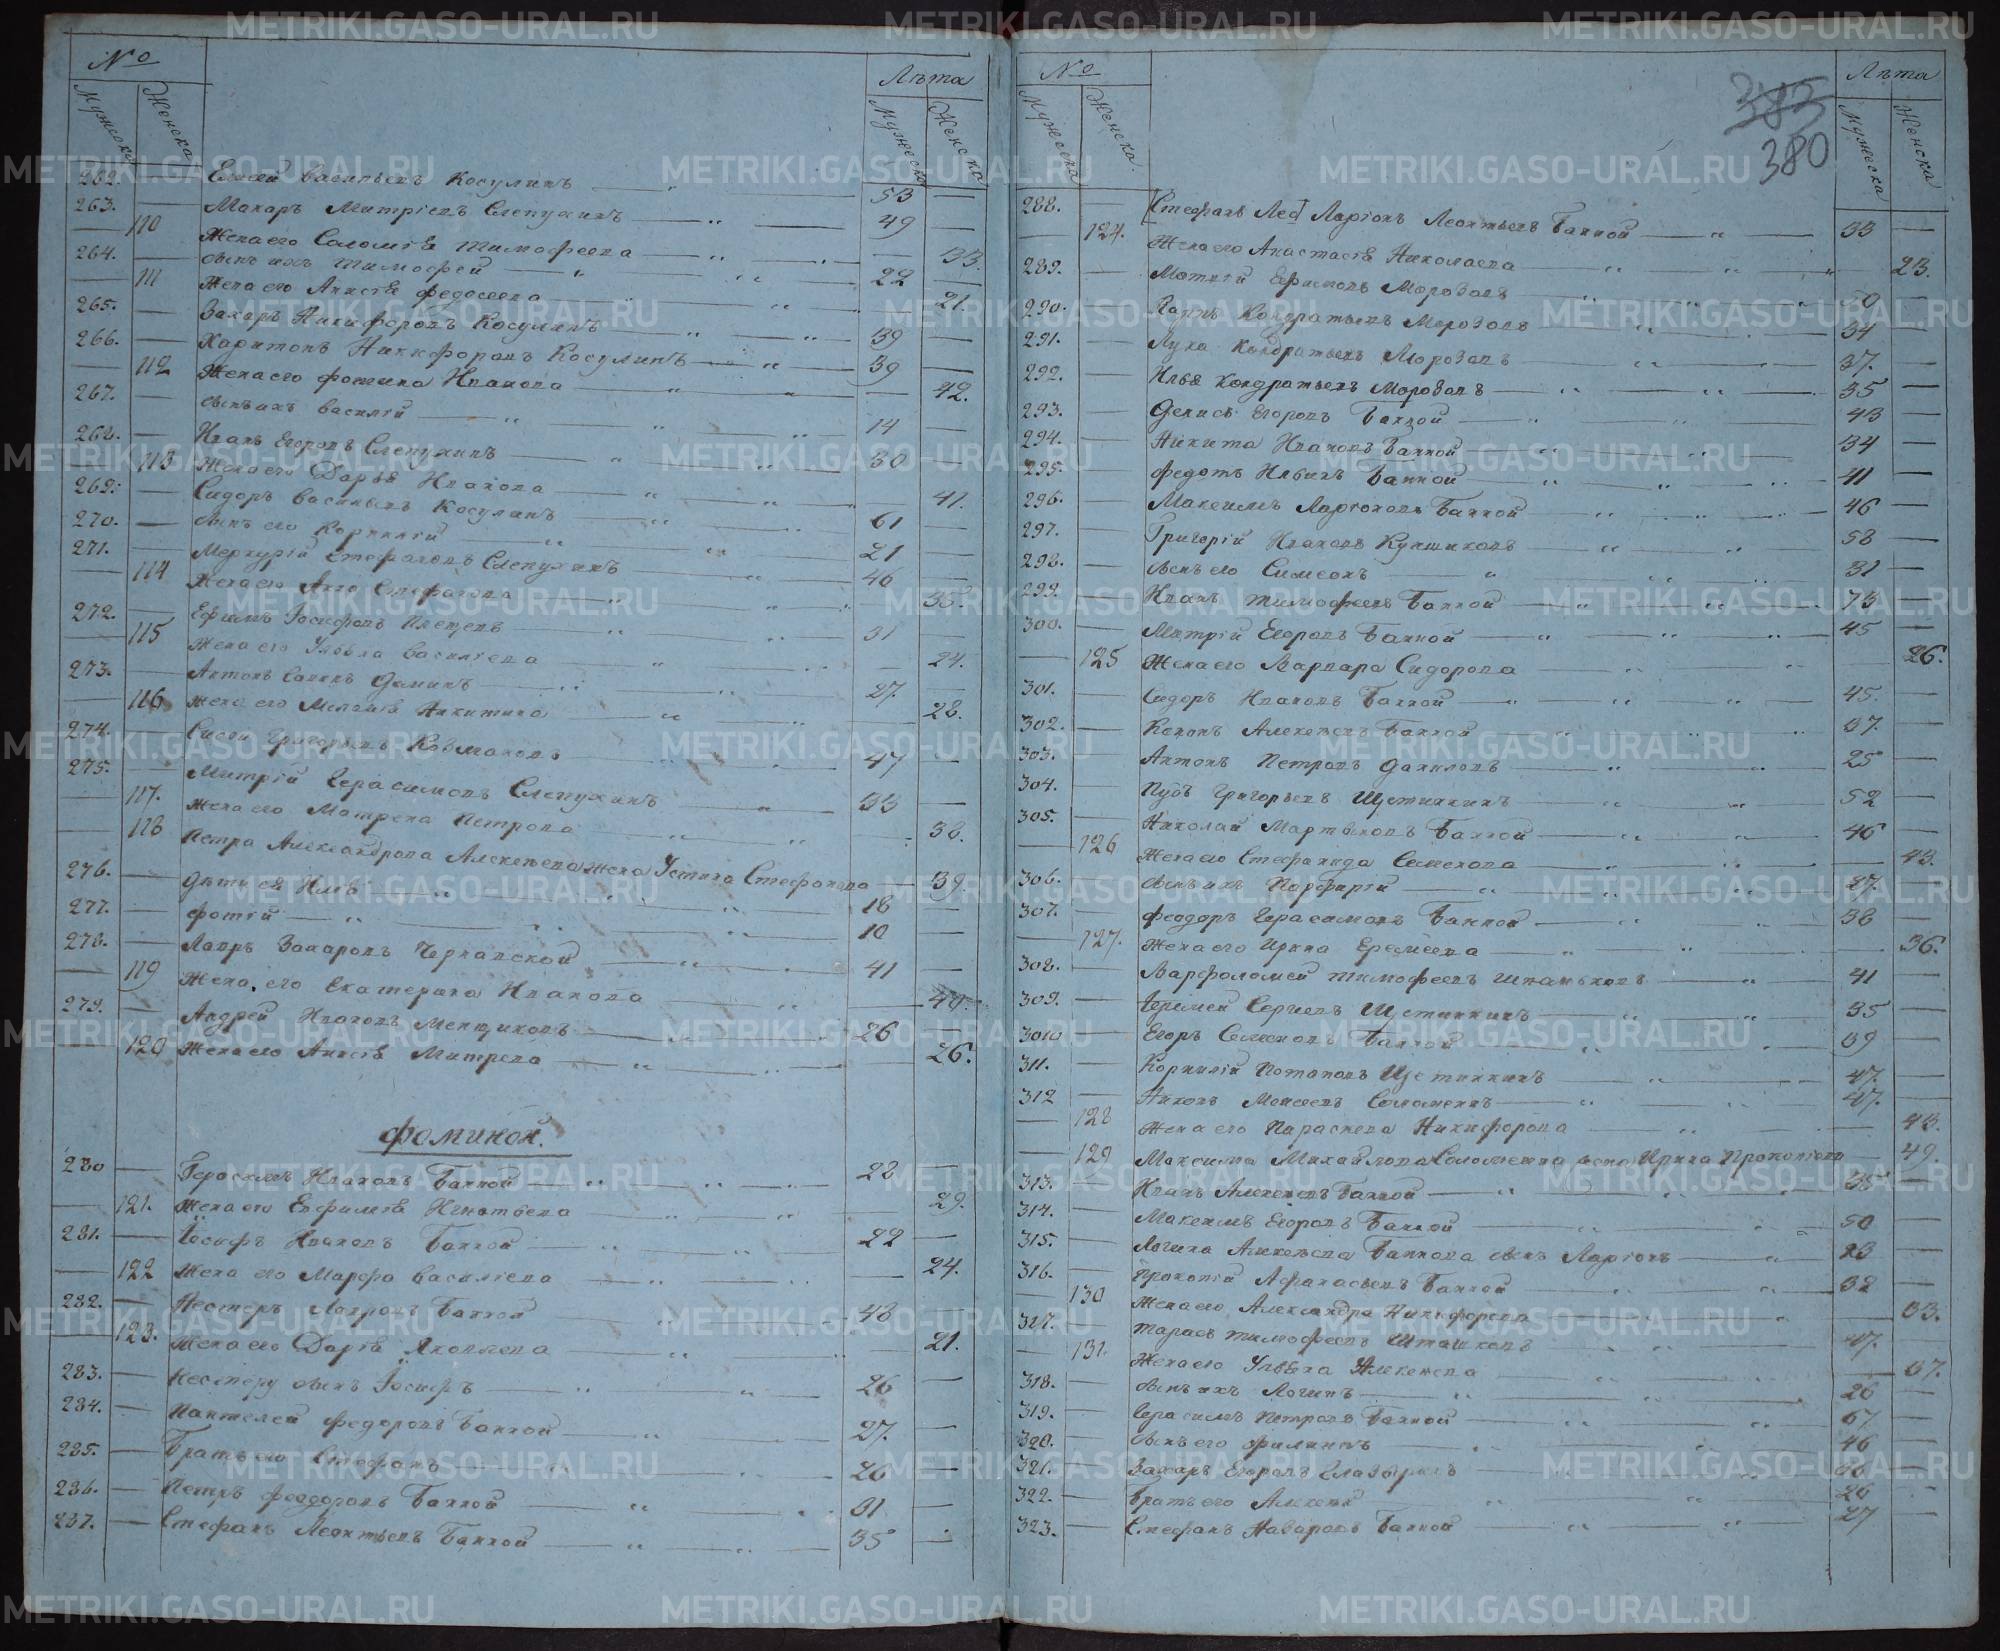 №
Лѣта
Мужеска Женска
Мужеска Женска
262. Елисей Васильевъ Косулинъ 53
263. Макаръ Митріевъ Слепухинъ 49
110 Жена его Соломія Тимофеева 33.
264. сынъ ихъ Тимофей 22
111 Жена его Анисія Федосеева 21.
265. Захаръ Никифоровъ Косулинъ 39
266. Харитонъ Никифоровъ Косулинъ 39
112 Жена его Фотина Иванова 42.
267. сынъ ихъ Василій 14
268. Иванъ Егоровъ Слепухинъ 30
113 Жена его Дарья Иванова 41.
269. Сидоръ Васильевъ Косулинъ 61
270. Сынъ его Корнилій 21
271. Меркурій Стефановъ Слепухинъ 46
114 Жена его Анна Стефанова
272. Ефимъ Іосифовъ 31
115 Жена его Ульяна Василіева 24.
273. Антонъ Саввинъ Деминъ 27
116 Жена его Меланія Никитина 28.
274. Сысой Григорьевъ 47
275. Митрій Герасимовъ Слепухинъ 33
117. Жена его Матрена Петрова 38.
118 Петра Александрова Алексеева жена Устина Стефанова 39.
276. Дѣти ея Илья 18
277. Фотій 10
278. Лавръ Захаровъ Черкавской 41
119 Жена его Екатерина Иванова 40.
279. Андрей Ивановъ Менщиковъ 26
120 Жена его Анисія Митрева 26.
Фоминой.
280 Герасимъ Ивановъ Банной 28
121. Жена его Евфимія Игнатьева 29.
281. Іосифъ Ивановъ Банной 22
122 Жена его Марфа Василіева 24.
282. Нестеръ Лавровъ Банной 48
123. Жена его Дарія Яковлева 21.
283. Нестеру сынъ Іосифъ 26
284. Пантелей Федоровъ Банной 27.
285. Братъ его Стефанъ 20
286. Петръ Феодоровъ Банной 31
287. Стефанъ Леонтьевъ Банной 35
№
Лѣта
Мужеска Женска.
Мужеска Женска
385
380
288. Стефанъ Лео Ларіонъ Леонтьевъ Банной 33
124. Жена его Анастасія Николаева 23.
289. Морововъ
290. Кондратьевъ Морововъ 34
291. Лука Кондратьевъ Морововъ 37.
292. Илья Кондратьевъ Морововъ 35
293. Денисъ Егоровъ Банной 43
294. Никита Ивановъ Банной 34
295. Федотъ Ильинъ Банной 41
296. Максимъ Ларіоновъ Банной 46
297. Григорій Ивановъ Кунщиковъ 58
298. Сынъ его Симеонъ 31
299. Иванъ Тимофеевъ Банной 73
300. Митрій Егоровъ Банной 45
125 Жена его Варвара Сидорова 26.
301. Сидоръ Ивановъ Банной 45.
302. Кононъ Алексеевъ Банной 37.
303. Антонъ Петровъ Даниловъ 25
304. Григорьевъ Щетинкинъ 52
305. Николай Мартыновъ Банной 46
126 Жена его Стефанида Семенова 43.
306. Сынъ ихъ Порфирій 27.
307. Феодоръ Герасимовъ Банной 38
127. Жена его Ирина Еремеева 36.
308. Варфоломей Тимофеевъ 41
309. Еремей Сергіевъ Щетинкинъ 35
3010 Егоръ Семеновъ Банной 39
311. Корнилій Потаповъ Щетинкинъ 47.
312 Моисеевъ Соломеинъ 47.
128 Жена его Параскева Никифорова 43.
129 Максима Михайлова Соломеина жена Ирина Прокопіева 49.
313. Иванъ Алексеевъ Банной 35
314. Максимъ Егоровъ Банной 50
315. Логина Алексеева Баннова сынъ Ларіонъ 23
316. Прокопій Афанасьевъ Банной 32
130 Жена его Александра Никифорова 33.
317. Тарасъ Тимофеевъ 47.
131. Жена его Ульяна Алексеева 37.
318. Сынъ ихъ Логинъ 20
319. Герасимъ Петровъ Банной 67.
320. Сынъ его Филиппъ 46
321. Захаръ Егоровъ
322. Братъ его Алексей 26
323. Стефанъ Назаровъ Банной 27